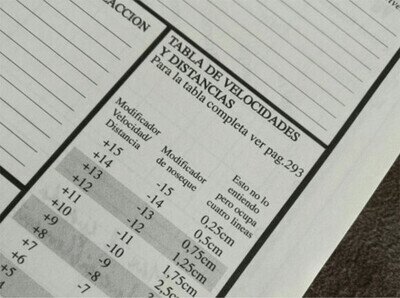 ACCION
TABLA DE VELOCIDADES
Y DISTANCIAS
Para la tabla completa ver pag.293
Modificador
Velocidad/
Distancia
Modificador
de noseque
Esto no lo
entiendo
pero ocupa
cuatro lineas
+15 -15 0,25cm
+14 -14 0,5cm
+13 -13 0,75cm
+12 -12 1,25cm
+11 -11 1,75cm
+10 -10 2,5cm
+9 -9
+8 -8
+7 -7
+6
+5